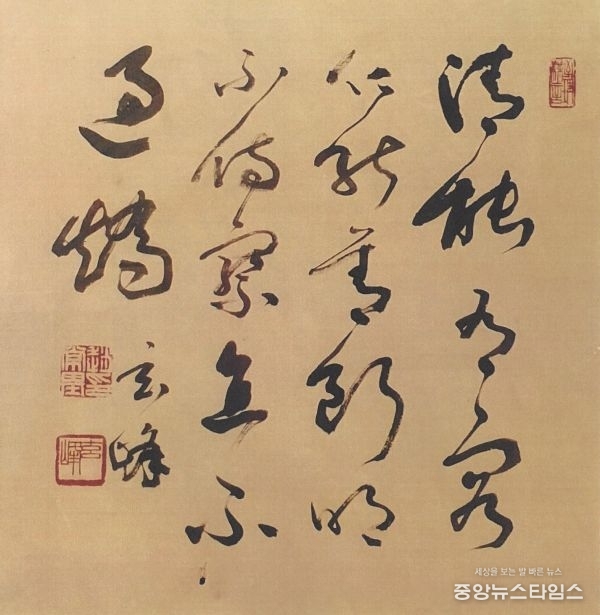 清能有容
仁能善斷明
不傷察直不
過矯
玄峰
세상을 보는 발 바른 뉴스
중앙뉴스타임스